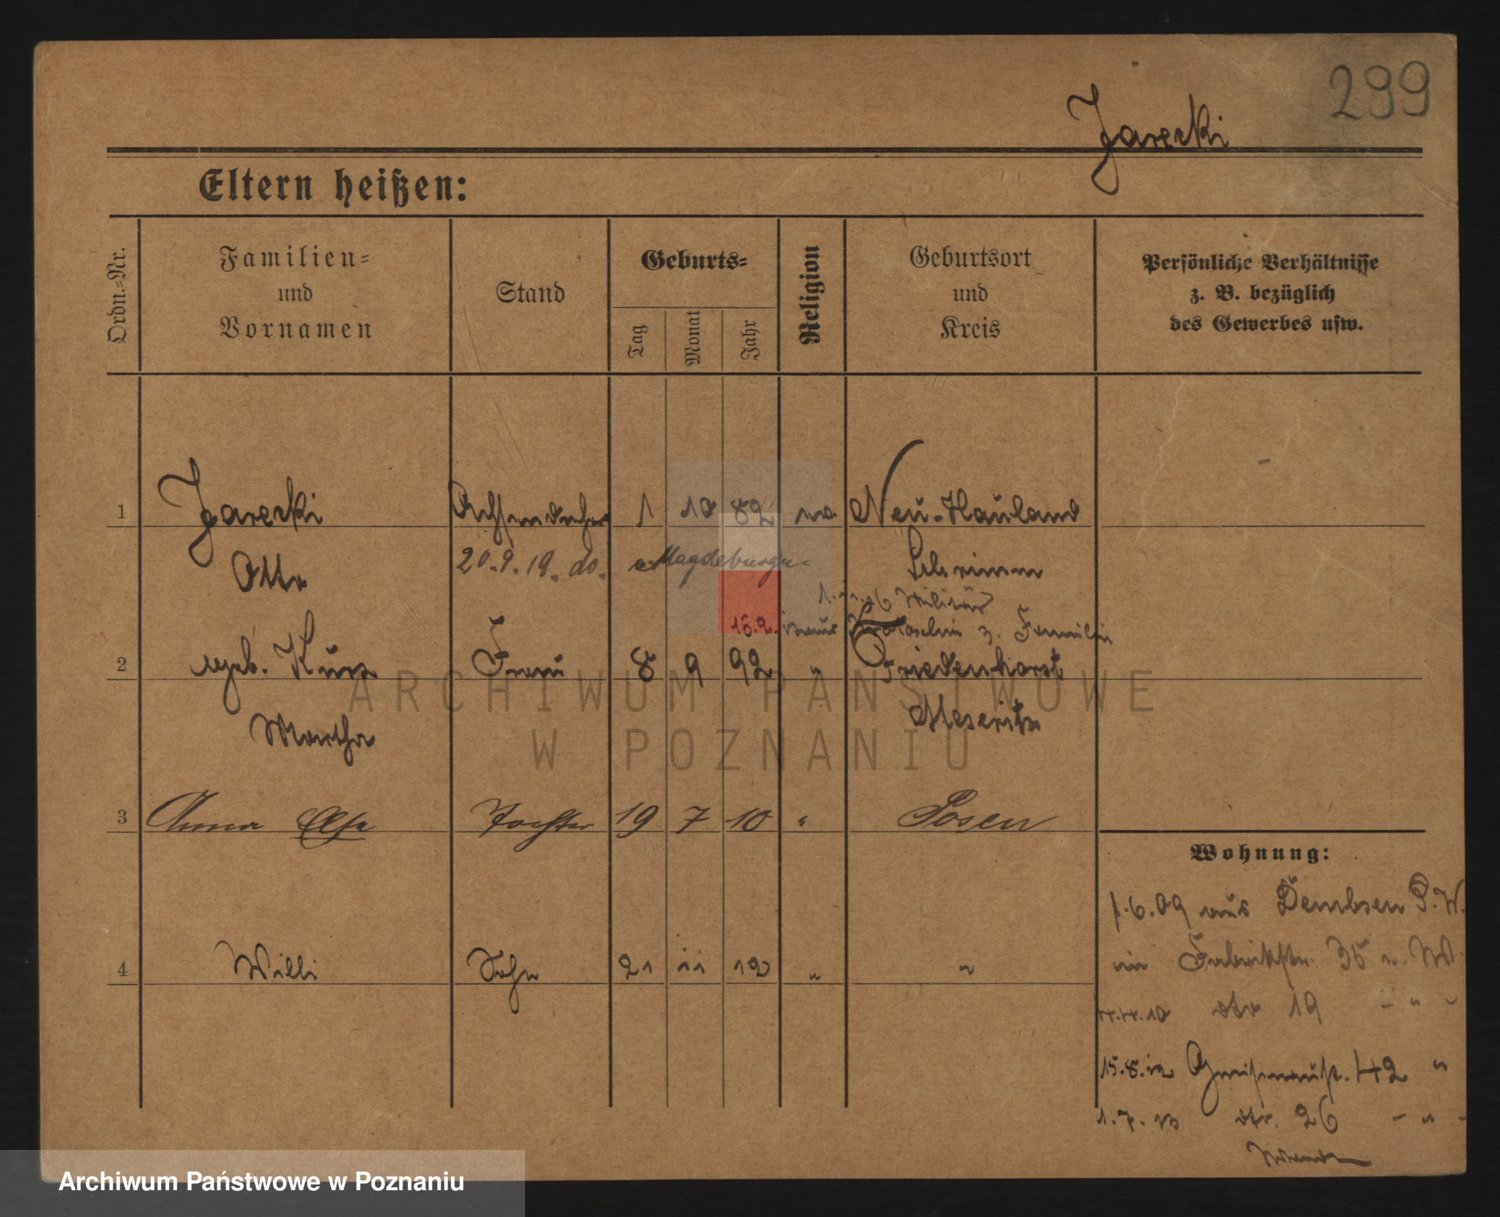 299
Jarecki
Eltern heißen:
Ordn.-Nr.
Familien-
und
Vornamen
Stand
Geburts-
Tag
Monat
Jahr
Religion
Geburtsort
und
Kreis
Persönliche Verhältnisse
z. B. bezüglich
des Gewerbes usw.
1 Jarecki 1 10 82 Neu-Hauland
Otto 20.9.19. do. Magdeburg Schrimm
Militär
16.2. aus z. Familie
2 geb. Kurz Frau 8 9 92 " Friedenhorst
Martha Meseritz
3 Anna Else Tochter 19 7 10 " Posen
Wohnung:
1.6.09 aus Dembsen P.W.
4 Willi Sohn 21 11 12 " "
in Fabrikstr. 35
4.4.10 19 - " -
15.8.12 42 "
1.7.13 26 - " -
ARCHIWUM PAŃSTWOWE
W POZNANIU
Archiwum Państwowe w Poznaniu